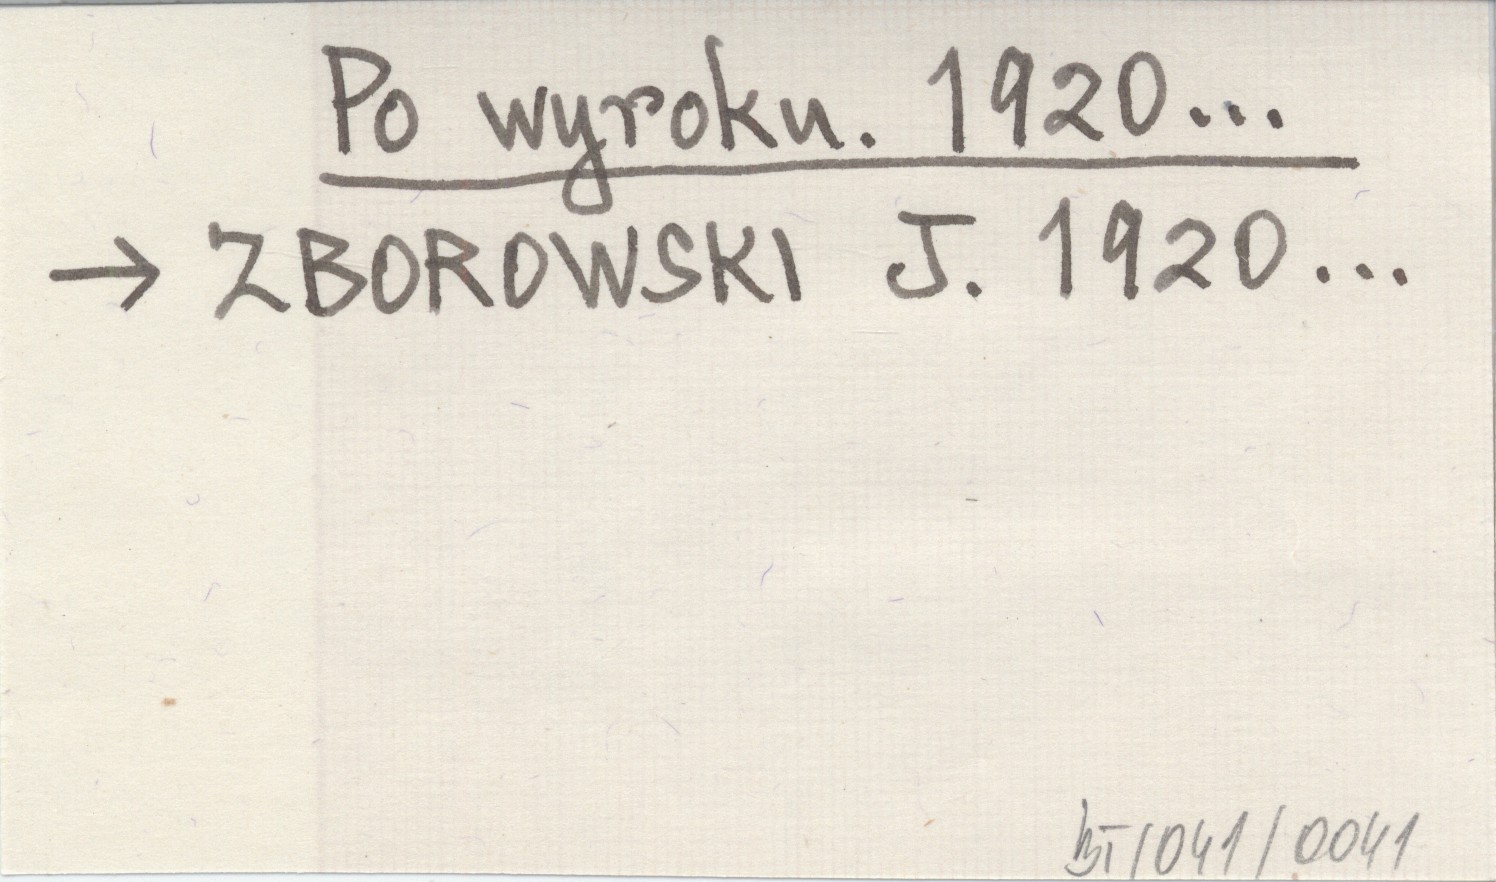 Po wyroku. 1920...
→ ZBOROWSKI J. 1920...
BT/041/0041